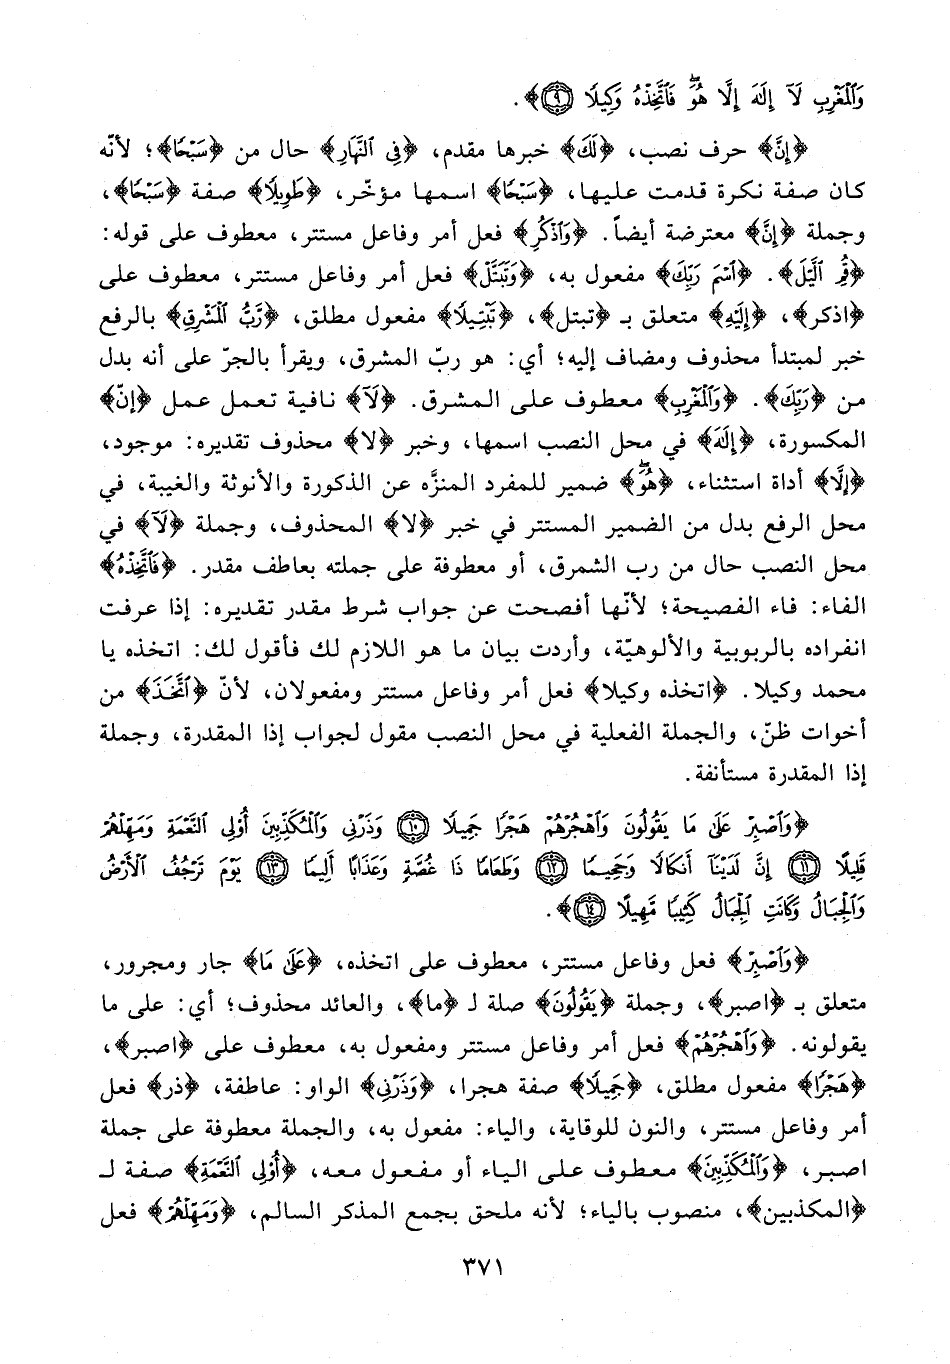 وَٱلْمَغْرِبِ لَآ إِلَٰهَ إِلَّا هُوَ فَٱتَّخِذْهُ وَكِيلًا ﴿٩﴾﴾.
﴿إِنَّ﴾ حرف نصب، ﴿لَكَ﴾ خبرها مقدم، ﴿فِي ٱلنَّهَارِ﴾ حال من ﴿سَبْحًا﴾؛ لأنّه
كان صفة نكرة قدمت عليها، ﴿سَبْحًا﴾ اسمها مؤخّر، ﴿طَوِيلًا﴾ صفة ﴿سَبْحًا﴾،
وجملة ﴿إِنَّ﴾ معترضة أيضاً. ﴿وَٱذْكُرِ﴾ فعل أمر وفاعل مستتر، معطوف على قوله:
﴿قُمِ ٱلَّيْلَ﴾. ﴿ٱسْمَ رَبِّكَ﴾ مفعول به، ﴿وَتَبَتَّلْ﴾ فعل أمر وفاعل مستتر، معطوف على
﴿اذكر﴾، ﴿إِلَيْهِ﴾ متعلق بـ ﴿تبتل﴾، ﴿تَبْتِيلًا﴾ مفعول مطلق، ﴿رَّبُّ ٱلْمَشْرِقِ﴾ بالرفع
خبر لمبتدأ محذوف ومضاف إليه؛ أي: هو ربّ المشرق، ويقرأ بالجرّ على أنه بدل
من ﴿رَبِّكَ﴾. ﴿وَٱلْمَغْرِبِ﴾ معطوف على المشرق. ﴿لَآ﴾ نافية تعمل عمل ﴿إنّ﴾
المكسورة، ﴿إِلَٰهَ﴾ في محل النصب اسمها، وخبر ﴿لا﴾ محذوف تقديره: موجود،
﴿إِلَّا﴾ أداة استثناء، ﴿هُوَ﴾ ضمير للمفرد المنزَّه عن الذكورة والأنوثة والغيبة، في
محل الرفع بدل من الضمير المستتر في خبر ﴿لا﴾ المحذوف، وجملة ﴿لَآ﴾ في
محل النصب حال من رب الشمرق، أو معطوفة على جملته بعاطف مقدر. ﴿فَٱتَّخِذْهُ﴾
الفاء: فاء الفصيحة؛ لأنّها أفصحت عن جواب شرط مقدر تقديره: إذا عرفت
انفراده بالربوبية والألوهيّة، وأردت بيان ما هو اللازم لك فأقول لك: اتخذه يا
محمد وكيلا. ﴿اتخذه وكيلا﴾ فعل أمر وفاعل مستتر ومفعولان، لأنّ ﴿ٱتَّخَذَ﴾ من
أخوات ظنّ، والجملة الفعلية في محل النصب مقول لجواب إذا المقدرة، وجملة
إذا المقدرة مستأنفة.
﴿وَٱصْبِرْ عَلَىٰ مَا يَقُولُونَ وَٱهْجُرْهُمْ هَجْرًا جَمِيلًا ﴿١٠﴾ وَذَرْنِي وَٱلْمُكَذِّبِينَ أُوْلِي ٱلنَّعْمَةِ وَمَهِّلْهُمْ
قَلِيلًا ﴿١١﴾ إِنَّ لَدَيْنَآ أَنكَالًا وَجَحِيمًا ﴿١٢﴾ وَطَعَامًا ذَا غُصَّةٍ وَعَذَابًا أَلِيمًا ﴿١٣﴾ يَوْمَ تَرْجُفُ ٱلْأَرْضُ
وَٱلْجِبَالُ وَكَانَتِ ٱلْجِبَالُ كَثِيبًا مَّهِيلًا ﴿١٤﴾﴾.
﴿وَٱصْبِرْ﴾ فعل وفاعل مستتر، معطوف على اتخذه، ﴿عَلَىٰ مَا﴾ جار ومجرور،
متعلق بـ ﴿اصبر﴾، وجملة ﴿يَقُولُونَ﴾ صلة لـ ﴿ما﴾، والعائد محذوف؛ أي: على ما
يقولونه. ﴿وَٱهْجُرْهُمْ﴾ فعل أمر وفاعل مستتر ومفعول به، معطوف على ﴿اصبر﴾،
﴿هَجْرًا﴾ مفعول مطلق، ﴿جَمِيلًا﴾ صفة هجرا، ﴿وَذَرْنِي﴾ الواو: عاطفة، ﴿ذر﴾ فعل
أمر وفاعل مستتر، والنون للوقاية، والياء: مفعول به، والجملة معطوفة على جملة
اصبر، ﴿وَٱلْمُكَذِّبِينَ﴾ معطوف على الياء أو مفعول معه، ﴿أُوْلِي ٱلنَّعْمَةِ﴾ صفة لـ
﴿المكذبين﴾، منصوب بالياء؛ لأنه ملحق بجمع المذكر السالم، ﴿وَمَهِّلْهُمْ﴾ فعل
٣٧١